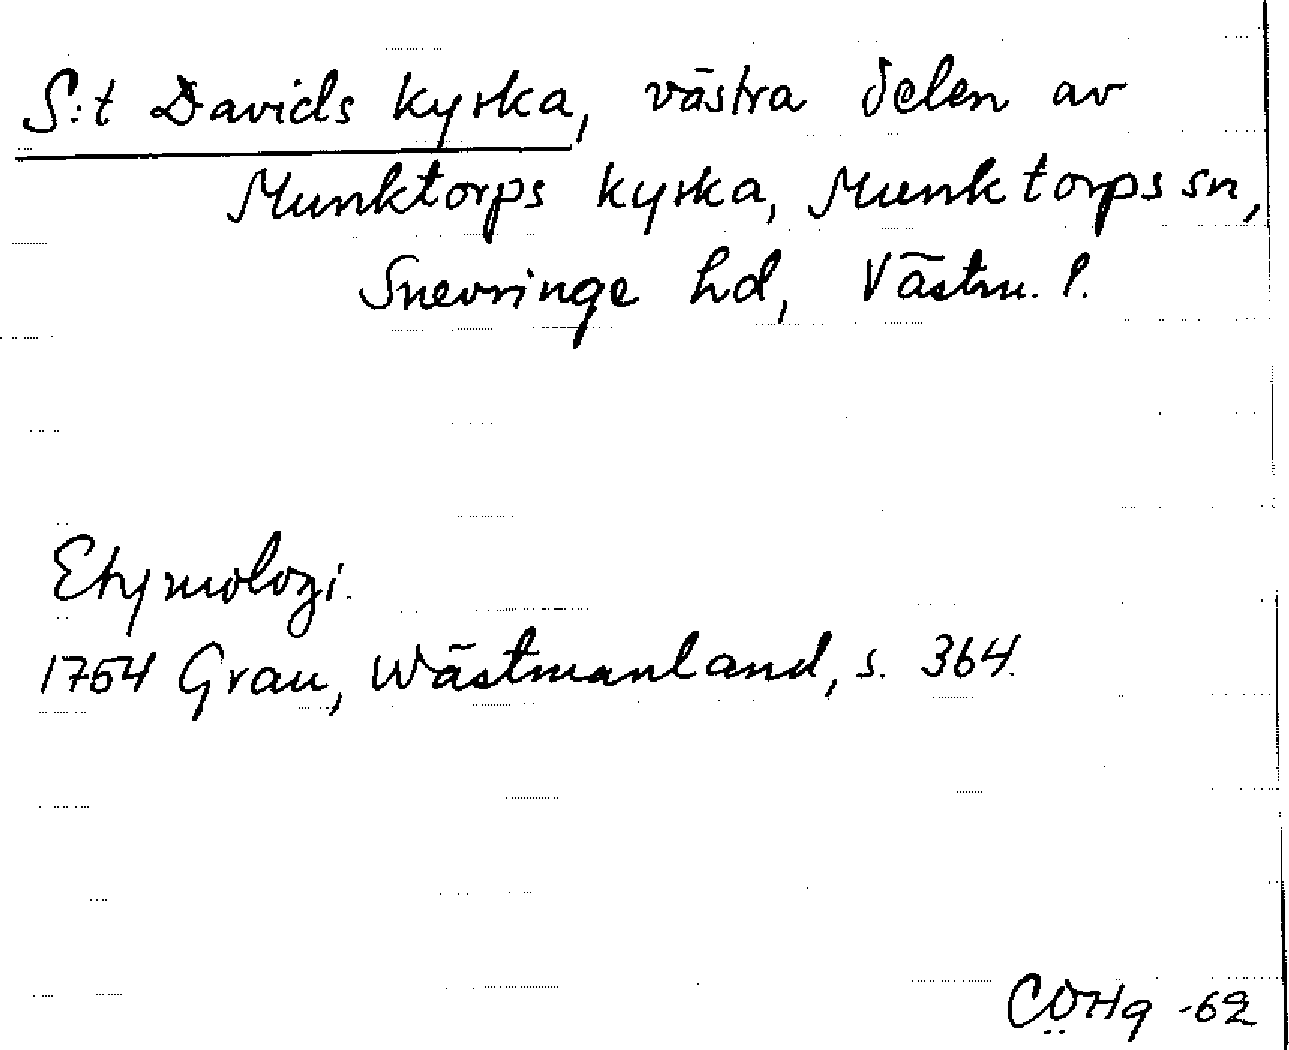 S:t Davids kyrka, västra delen av
Munktorps kyrka, Munktorps sn,
Snevringe hd, Västm. l.
Etymologi.
1754 Grau, Wästmanland, s. 364.
CÖHg -62